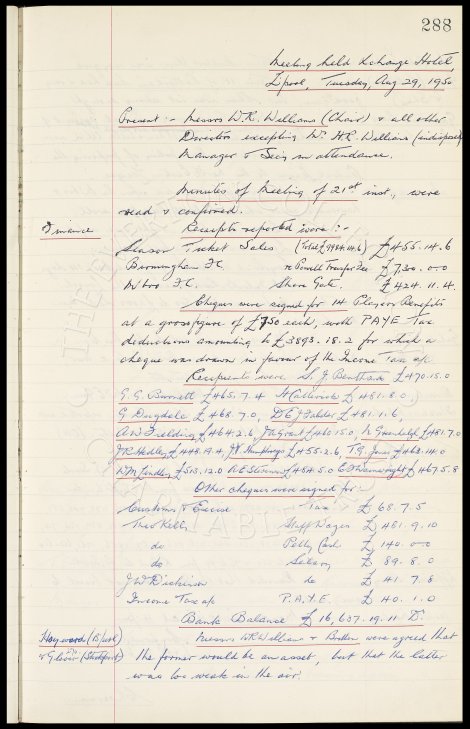 288
Meeting held Xchange Hotel,
L'pool, Tuesday, Aug 29, 1950
Present :- Messrs W.R. Williams (Chair) & all other
Directors excepting Mr. H.R. Williams (indisposed)
Manager & Secy in attendance.
Minutes of Meeting of 21st inst., were
read & confirmed.
Finance
Receipts reported were :-
Season Ticket Sales (Total £9984.14.6) £455.14.6
Birmingham F.C. re Powell Transfer Fee £7,300.0.0
W'ton F.C. Share Gate. £424.11.4.
Cheques were signed for 14 Players Benefits
at a gross figure of £750 each, with PAYE Tax
deductions amounting to £3893.18.2 for which a
cheque was drawn in favour of the Income Tax a/c
Recipients were S. J. Bentham £470.15.0
G. G. Burnett £465.7.4 £481.8.0
G. Dugdale £468.7.0, D E J Falder £481.1.6,
A W Fielding £464.2.6, J A Grant £460.15.0, N Greenhalgh £481.7.0
J R Hedley £448.19.4, J Humphreys £455.2.6, T G Jones £462.14.0
W M Lindley £513.12.0 A E Stevenson £484.5.0 E F Wainwright £467.5.8
Other cheques were signed for
Customs & Excise Tax £68.7.5
Theo Kelly Staff Wages £481.9.10
do Petty Cash £140.0.0
do Salary £89.8.0
J W Dickinson do £41.7.8
Income Tax a/c P.A.Y.E. £40.1.0
Bank Balance £16,607.19.11 Dr.
Hayward (B'pool)
& Glover (Stockport)
Messrs W R Williams & were agreed that
the former would be an asset, but that the latter
was too weak in the air.